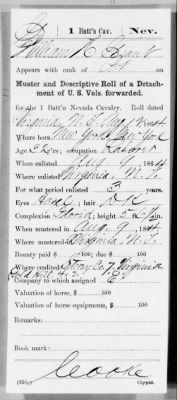 1 Batt'n Cav. Nev.
William H.
Appears with rank of
Muster and Descriptive Roll of a Detach-
ment of U. S. Vols. forwarded.
for the 1 Batt'n Nevada Cavalry. Roll dated
Virginia, N. T. Aug 1864
Where born New York, New York
Age y'rs; occupation Laborer
When enlisted Aug 9, 1864
Where enlisted Virginia, N. T.
For what period enlisted 3 years.
Eyes Hazel; hair D K
Complexion Florid; height 5 ft. in.
When mustered in Aug. 9, 1864
Where mustered in Virginia N. T.
Bounty paid $ 100; due $ 100
Where credited Virginia
Gold Hill
Company to which assigned
Valuation of horse, $ 100
Valuation of horse equipments, $ 100
Remarks:
Book mark:
Cooke
Copyist.